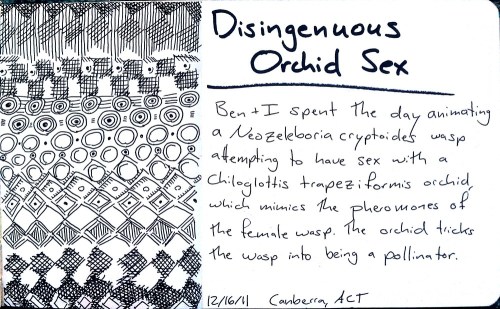 Disingenuous
Orchid Sex
Ben + I spent the day animating
a Neozeleboria cryptoides wasp
attempting to have sex with a
Chiloglottis trapeziformis orchid,
which mimics the pheromones of
the female wasp. The orchid tricks
the wasp into being a pollinator.
12/16/11 Canberra, ACT